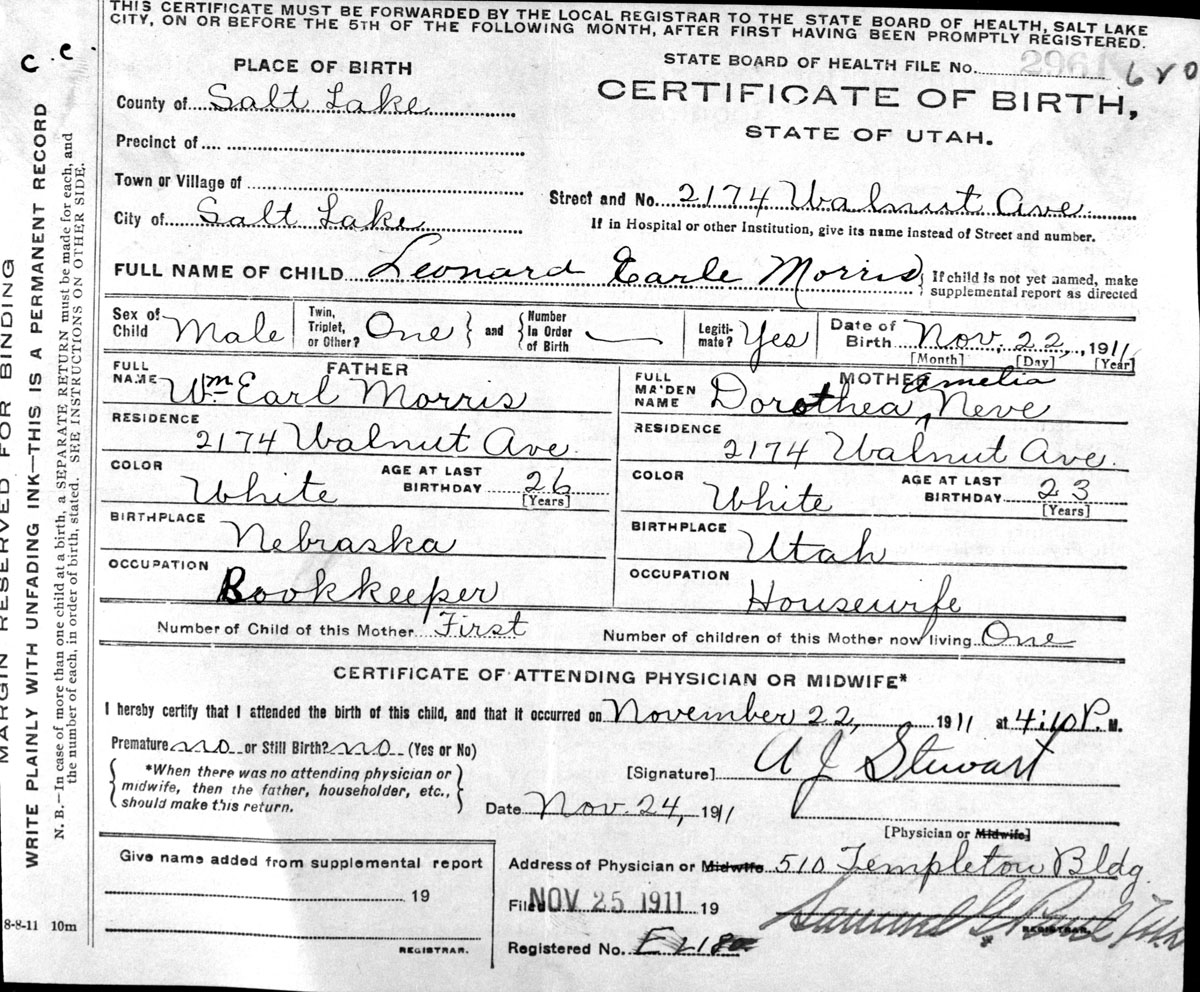 THIS CERTIFICATE MUST BE FORWARDED BY THE LOCAL REGISTRAR TO THE STATE BOARD OF HEALTH, SALT LAKE
CITY, ON OR BEFORE THE 5TH OF THE FOLLOWING MONTH, AFTER FIRST HAVING BEEN PROMPTLY REGISTERED.
C.C.
MARGIN RESERVED FOR BINDING
WRITE PLAINLY WITH UNFADING INK—THIS IS A PERMANENT RECORD
N. B.—In case of more than one child at a birth, a SEPARATE RETURN must be made for each, and
the number of each, in order of birth, stated. SEE INSTRUCTIONS ON OTHER SIDE.
STATE BOARD OF HEALTH FILE No. 2961 680
CERTIFICATE OF BIRTH,
STATE OF UTAH.
PLACE OF BIRTH
County of Salt Lake
Precinct of
Town or Village of
City of Salt Lake
Street and No. 2174 Walnut Ave.
If in Hospital or other Institution, give its name instead of Street and number.
FULL NAME OF CHILD Leonard Earle Morris { If child is not yet named, make
supplemental report as directed
Sex of Child Male
Twin, Triplet, or Other? One } and { Number In Order of Birth —
Legiti-mate? Yes
Date of Birth Nov. 22, 1911
[Month] [Day] [Year]
FATHER
FULL NAME Wm Earl Morris
RESIDENCE
2174 Walnut Ave.
COLOR White AGE AT LAST BIRTHDAY 26
[Years]
BIRTHPLACE Nebraska
OCCUPATION Bookkeeper
MOTHER
FULL MAIDEN NAME Dorothea Amelia Neve
RESIDENCE
2174 Walnut Ave.
COLOR White AGE AT LAST BIRTHDAY 23
[Years]
BIRTHPLACE Utah
OCCUPATION Housewife
Number of Child of this Mother First Number of children of this Mother now living One
CERTIFICATE OF ATTENDING PHYSICIAN OR MIDWIFE*
I hereby certify that I attended the birth of this child, and that it occurred on November 22, 1911 at 4:10 P. M.
Premature no or Still Birth? no (Yes or No)
{ *When there was no attending physician or
midwife, then the father, householder, etc.,
should make this return. }
[Signature] A J Stewart
Date Nov. 24, 1911
[Physician or Midwife]
Give name added from supplemental report
19
REGISTRAR.
8-8-11 10m
Address of Physician or Midwife 510 Templeton Bldg.
Filed NOV 25 1911 19
REGISTRAR.
Registered No.